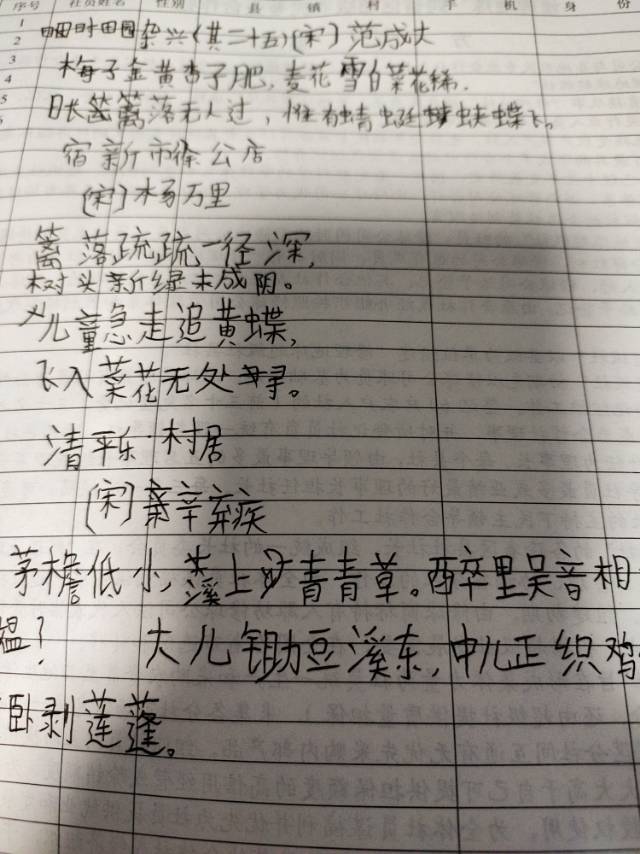 序号 社员姓名 性别 县 镇 村 手 机 身 份
1
2
3
4
5
6
四时田园杂兴(其二十五)(宋)范成大
梅子金黄杏子肥,麦花雪白菜花稀.
日长篱落无人过,惟有蜻蜓蛱蝶飞。
宿新市徐公店
(宋)杨万里
篱落疏疏一径深,
树头新绿未成阴。
儿童急走追黄蝶,
飞入菜花无处寻。
清平乐·村居
(宋)辛弃疾
茅檐低小,溪上青青草。醉里吴音相
媪? 大儿锄豆溪东,中儿正织鸡
卧剥莲蓬。